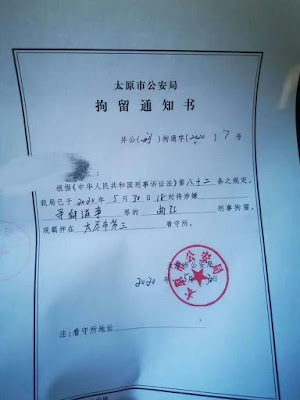 太原市公安局
拘留通知书
并公( )拘通字〔2020〕7号
根据《中华人民共和国刑事诉讼法》第八十二条之规定,
我局已于2020年5月30日18时将涉嫌
寻衅滋事罪的 刑事拘留,
现羁押在太原市第三看守所。
太原市公安局
2020年5月 日
注:看守所地址